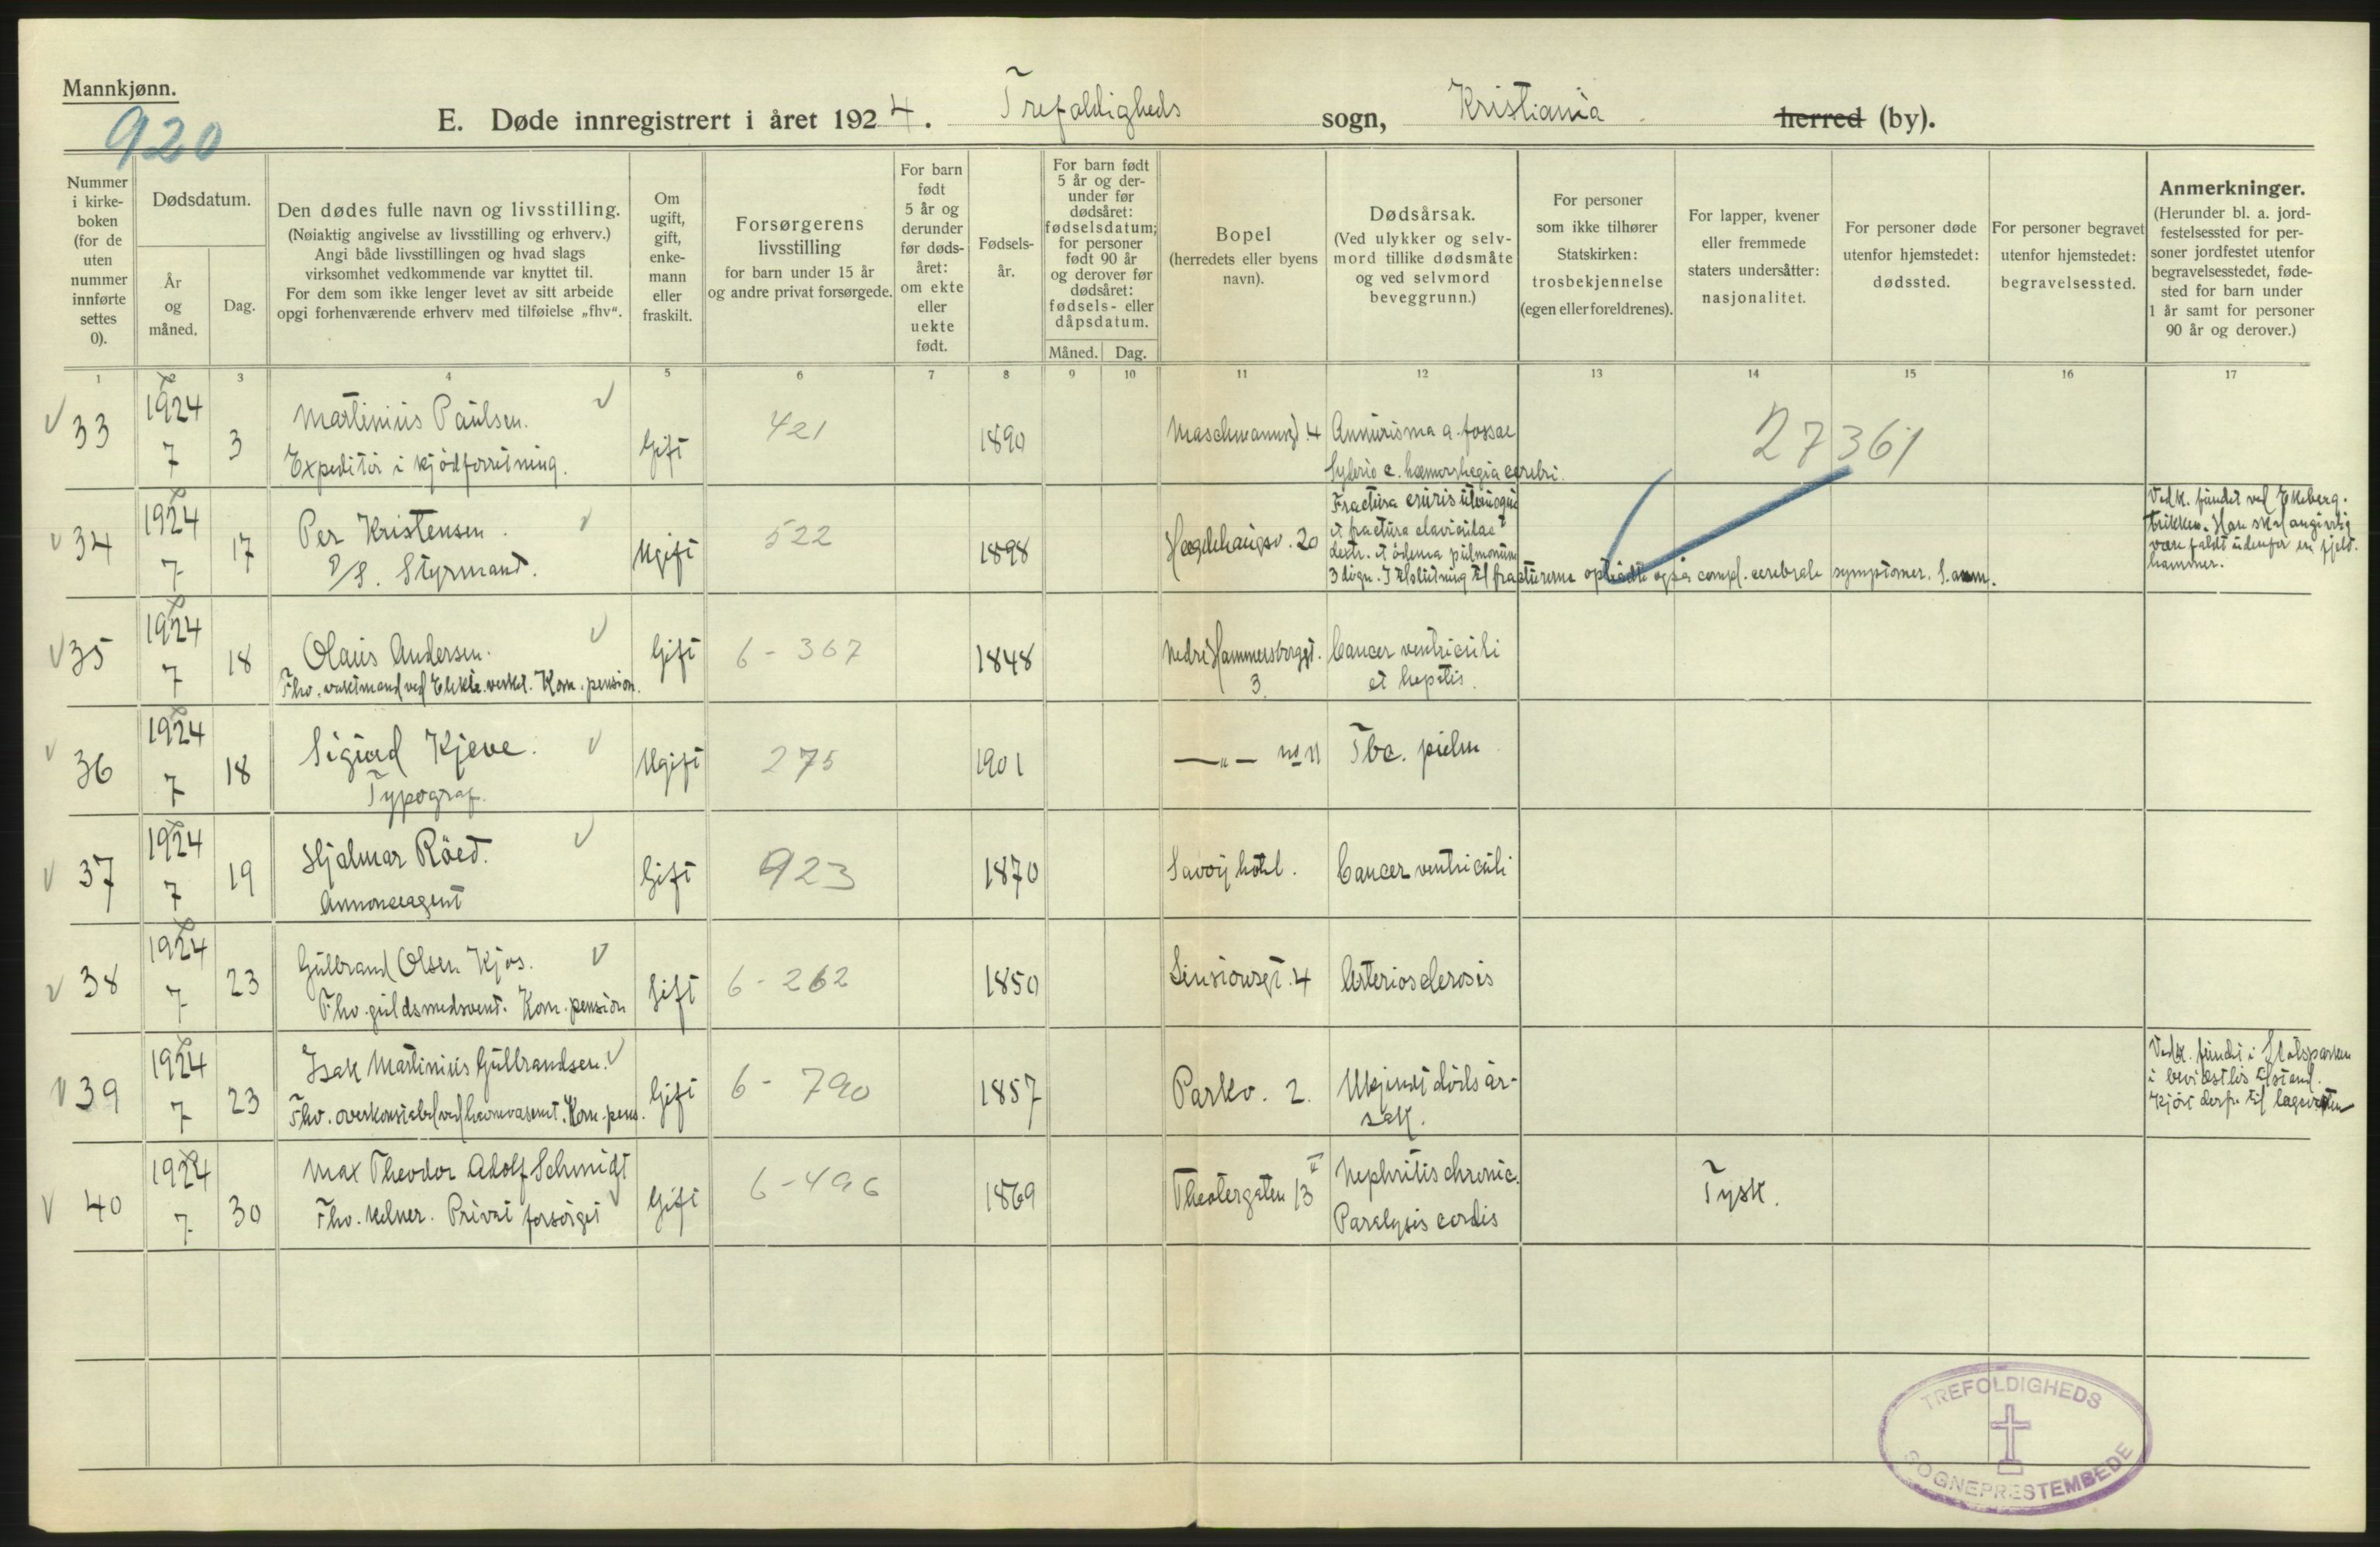 Mannkjønn.
920
E. Døde innregistrert i året 1924. Trefoldigheds sogn, Kristiania herred (by).
Nummer i kirkeboken (for de uten nummer innførte settes 0).
Dødsdatum.
År og måned.
Dag.
Den dødes fulle navn og livsstilling.
(Nøiaktig angivelse av livsstilling og erhverv.)
Angi både livsstillingen og hvad slags
virksomhet vedkommende var knyttet til.
For dem som ikke lenger levet av sitt arbeide
opgi forhenværende erhverv med tilføielse „fhv“.
Om ugift, gift, enkemann eller fraskilt.
Forsørgerens livsstilling
for barn under 15 år
og andre privat forsørgede.
For barn født 5 år og derunder før dødsåret: om ekte eller uekte født.
Fødselsår.
For barn født 5 år og derunder før dødsåret: fødselsdatum; for personer født 90 år og derover før dødsåret: fødsels- eller dåpsdatum.
Måned. Dag.
Bopel
(herredets eller byens navn).
Dødsårsak.
(Ved ulykker og selvmord tillike dødsmåte og ved selvmord beveggrunn.)
For personer som ikke tilhører Statskirken: trosbekjennelse (egen eller foreldrenes).
For lapper, kvener eller fremmede staters undersåtter: nasjonalitet.
For personer døde utenfor hjemstedet: dødssted.
For personer begravet utenfor hjemstedet: begravelsessted.
Anmerkninger.
(Herunder bl. a. jordfestelsessted for personer jordfestet utenfor begravelsesstedet, fødested for barn under 1 år samt for personer 90 år og derover.)
1 2 3 4 5 6 7 8 9 10 11 12 13 14 15 16 17
33 1924 7 3 Martinius Paulsen. Gift 421 1890 4 Annurisma a. fossae
Expeditør i kjødforretning. c. hæmorrhagia cerebri.
27361
34 1924 7 17 Per Kristensen. Ugift 522 1898 Hegdehaugsv. 20 Fractura cruris utriusque
D/S. Styrmand. et fractura claviculae
dextr. et ødema pulmonum
3 døgn. I tilslutning til fracturerne opträdte også compl. cerebrale symptomer. S. anm.
Vedk. fundet ved Ekeberg-
trikken. Han skal angivelig
være faldt utenfor en fjeld-
hammer.
35 1924 7 18 Olaus Andersen. Gift 6 - 367 1848 Nedre Hammersborggt. 3 Cancer ventriculi
Fhv. vaktmand ved Elektr. verket. Kom. pension. et hepatis.
36 1924 7 18 Sigurd Kjeve. Ugift 275 1901 —„— no 11 Tbc. pulm
Typograf.
37 1924 7 19 Hjalmar Röed. Gift 923 1870 Savoy hotel. Cancer ventriculi
Annonceagent
38 1924 7 23 Gulbrand Olsen Kjos. Gift 6 - 262 1850 4 Arteriosclerosis
Fhv. guldsmedsvend. Kom. pension
39 1924 7 23 Isak Martinius Gulbrandsen. Gift 6 - 790 1857 Parkv. 2. Ukjendt dødsår-
Fhv. overkonstabel ved havnevæsenet. Kom. pens. sak.
Vedk. fundet i Slotsparken
i bevidstløs tilstand.
Kjørt derfr. til lægevakten
40 1924 7 30 Max Theodor Adolf Schmidt Gift 6 - 496 1869 Theatergaten 13 II Nephritis chronic. Tysk.
Fhv. kelner. Privat forsörget Paralysis cordis
TREFOLDIGHEDS
SOGNEPRESTEMBEDE